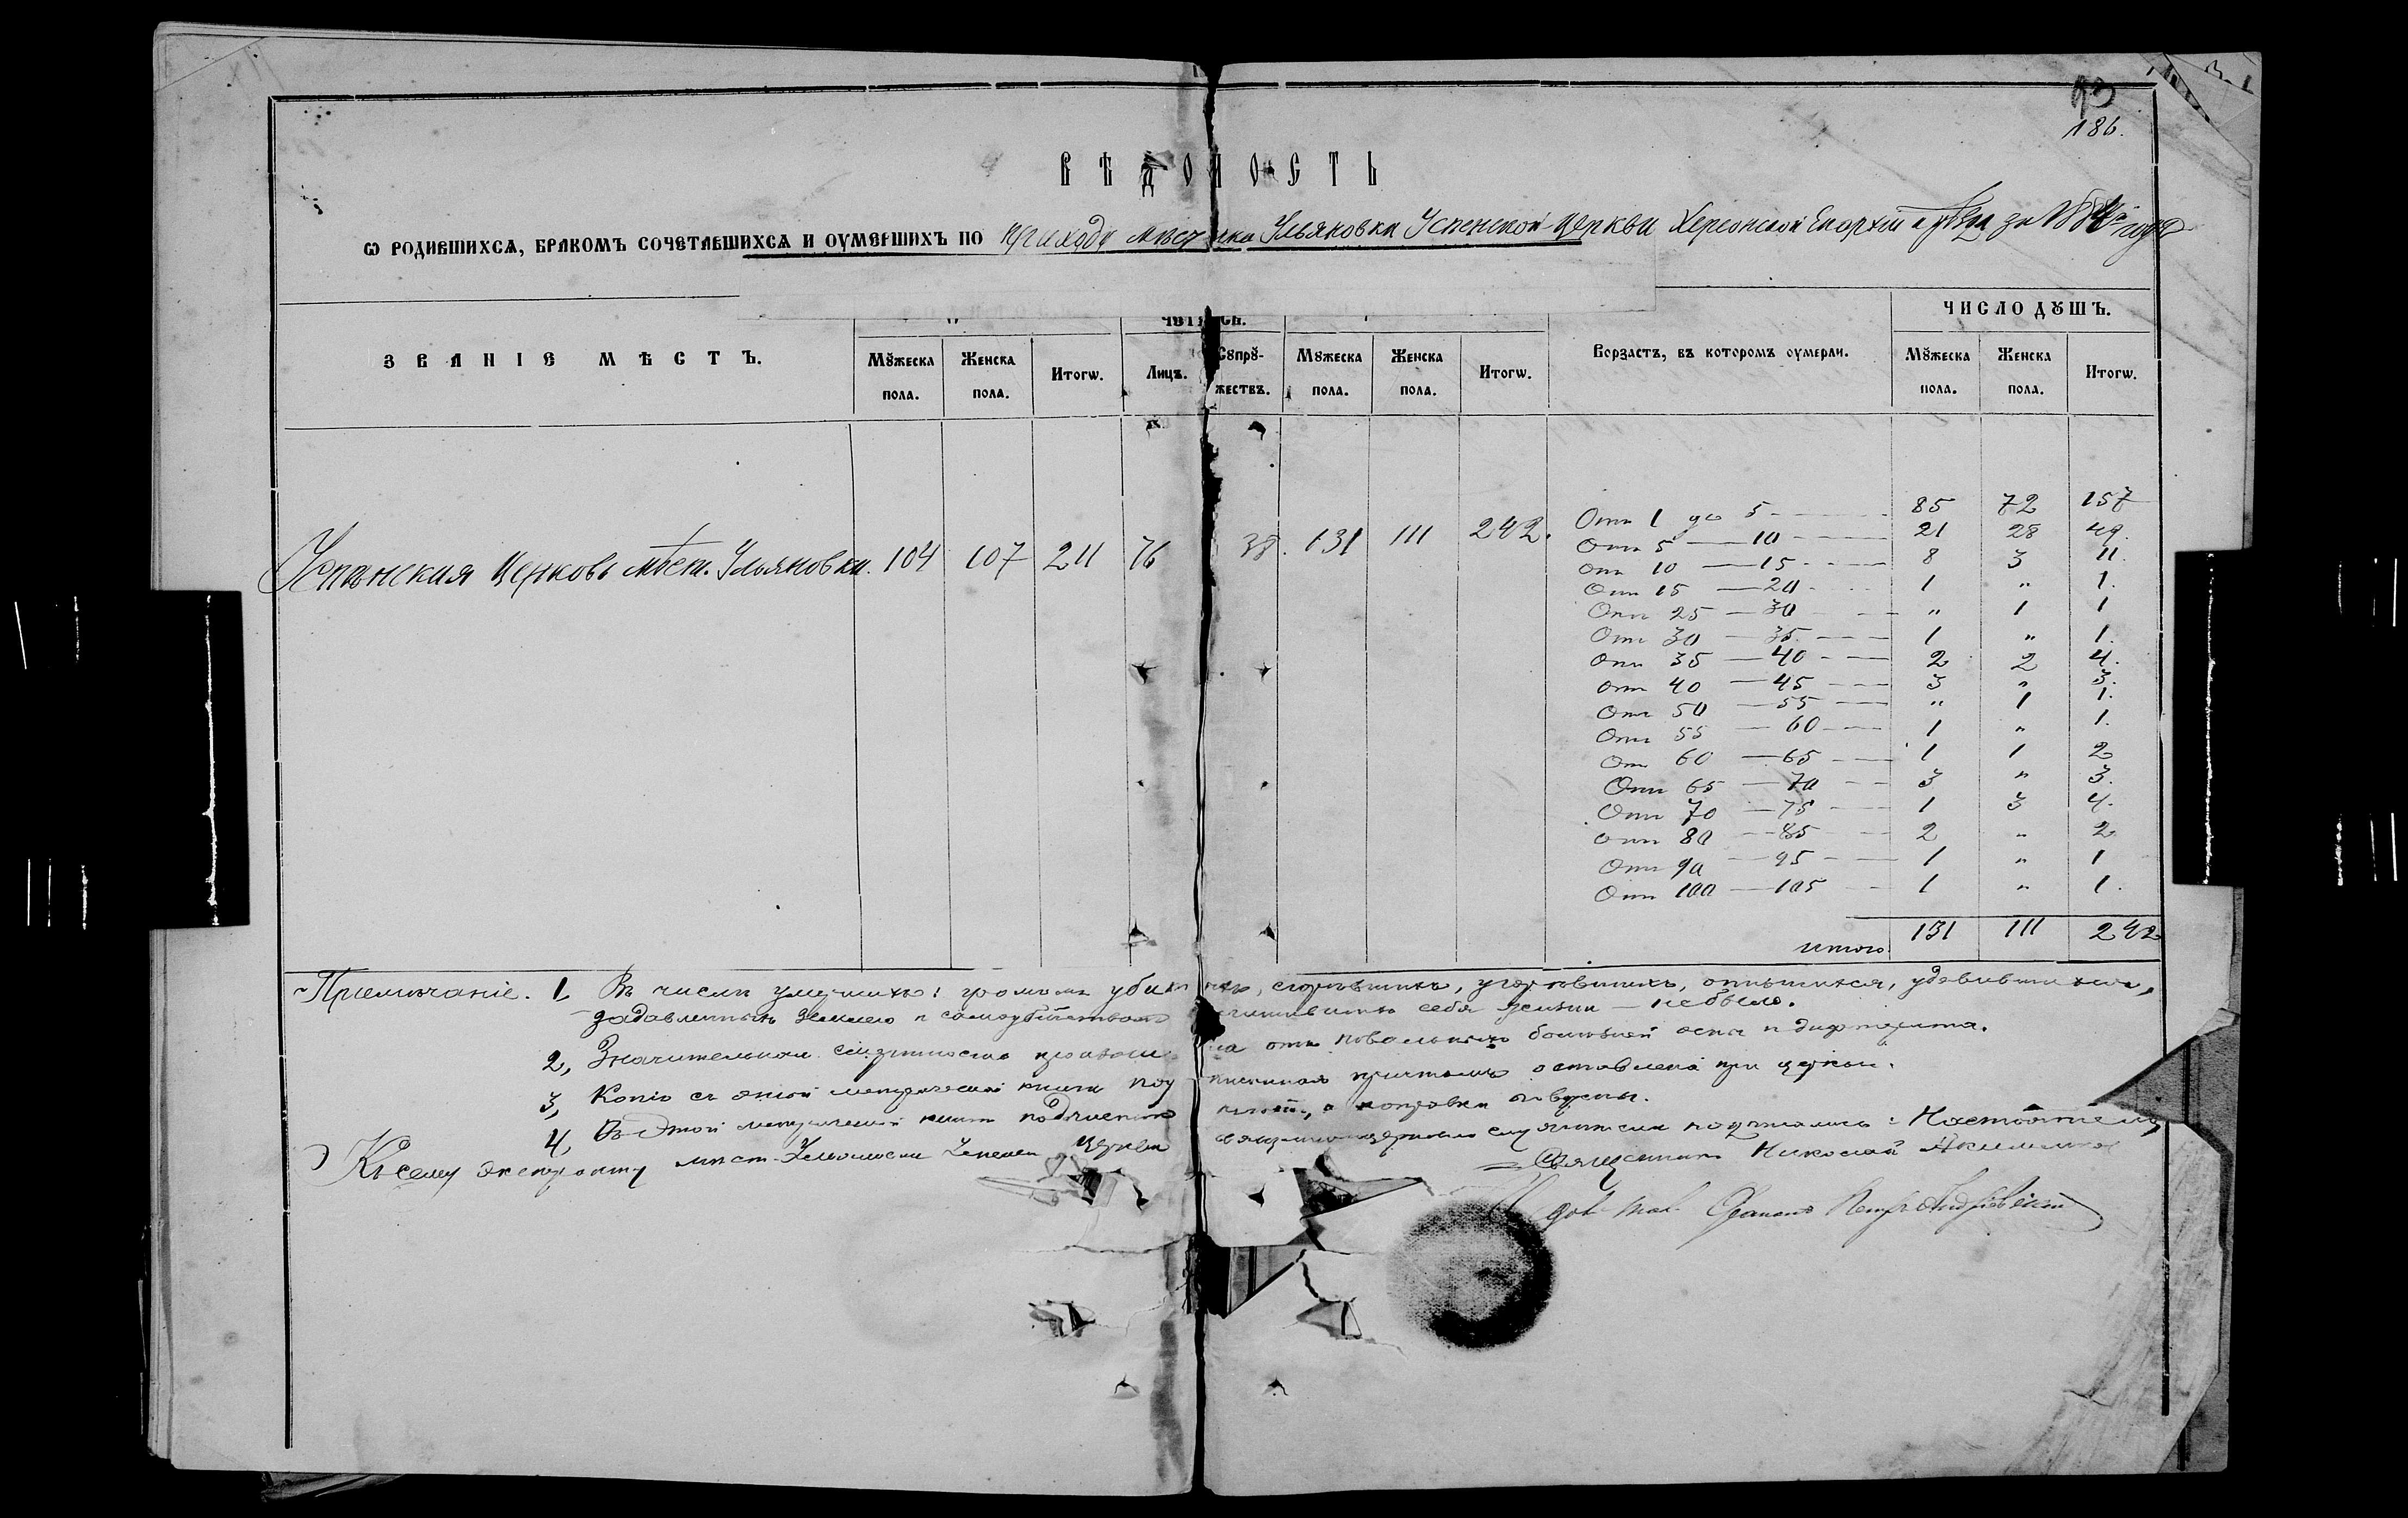 93
186.
ВѢДОМОСТЬ
Ѡ РОДИВШИХСѦ, БРАКОМЪ СОЧЕТАВШИХСѦ И ОУМЕРШИХЪ ПО приходу мѣстечка Ульяновки Успенской церкви Херсонской Епархіи и уѣзда за 1884 годъ
ЧИСЛО ДꙊШЪ.
ЗВАНІЕ МѢСТЪ.
Мꙋжеска пола. Женска пола. Итогѡ. Лицъ. Сꙋпрꙋжествъ. Мꙋжеска пола. Женска пола. Итогѡ. Ворзастъ, въ которомъ оумерли. Мꙋжеска пола. Женска пола. Итогѡ.
Успѣнская Церковь мѣст. Ульяновки. 104 107 211 76 38. 131 111 242.
Отъ 1 до 5 85 72 157
Отъ 5 — 10 21 28 49.
Отъ 10 — 15 8 3 11.
Отъ 15 — 20 1 " 1.
Отъ 25 — 30 " 1 1
Отъ 30 — 35 1 " 1.
Отъ 35 — 40 2 2 4.
Отъ 40 — 45 3 " 3.
Отъ 50 — 55 " 1 1.
Отъ 55 — 60 1 " 1.
Отъ 60 — 65 1 1 2
Отъ 65 — 70 3 " 3.
Отъ 70 — 75 1 3 4.
Отъ 80 — 85 2 " 2
Отъ 90 — 95 1 " 1
Отъ 100 — 105 1 " 1.
итого. 131 111 242
Примѣчаніе. 1, Въ числѣ умершихъ: громомъ убитыхъ, сгорѣвшихъ, угорѣвшихъ, опившихся, удавившихся,
задавленныхъ землею и самоубійствомъ лишившихъ себя жизни — не было.
2, Значительная смертность произошла отъ повальныхъ болѣзней оспы и дифтерита.
3, Копія съ этой метрической книги подписанная причтомъ оставлена при церкви.
4, Въ этой метрической книгѣ подчистки, и поправки оговорены.
Къ сему экстракту мѣст. Ульяновки Успен. Церкви священно-церковно служители подписались: Настоятель
Священникъ Николай